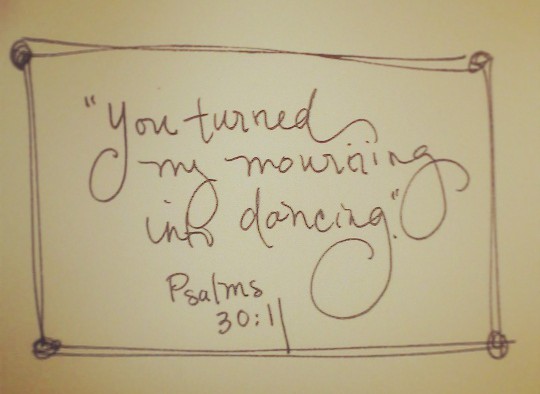 "You turned
my mourning
into dancing."
Psalms
30:11